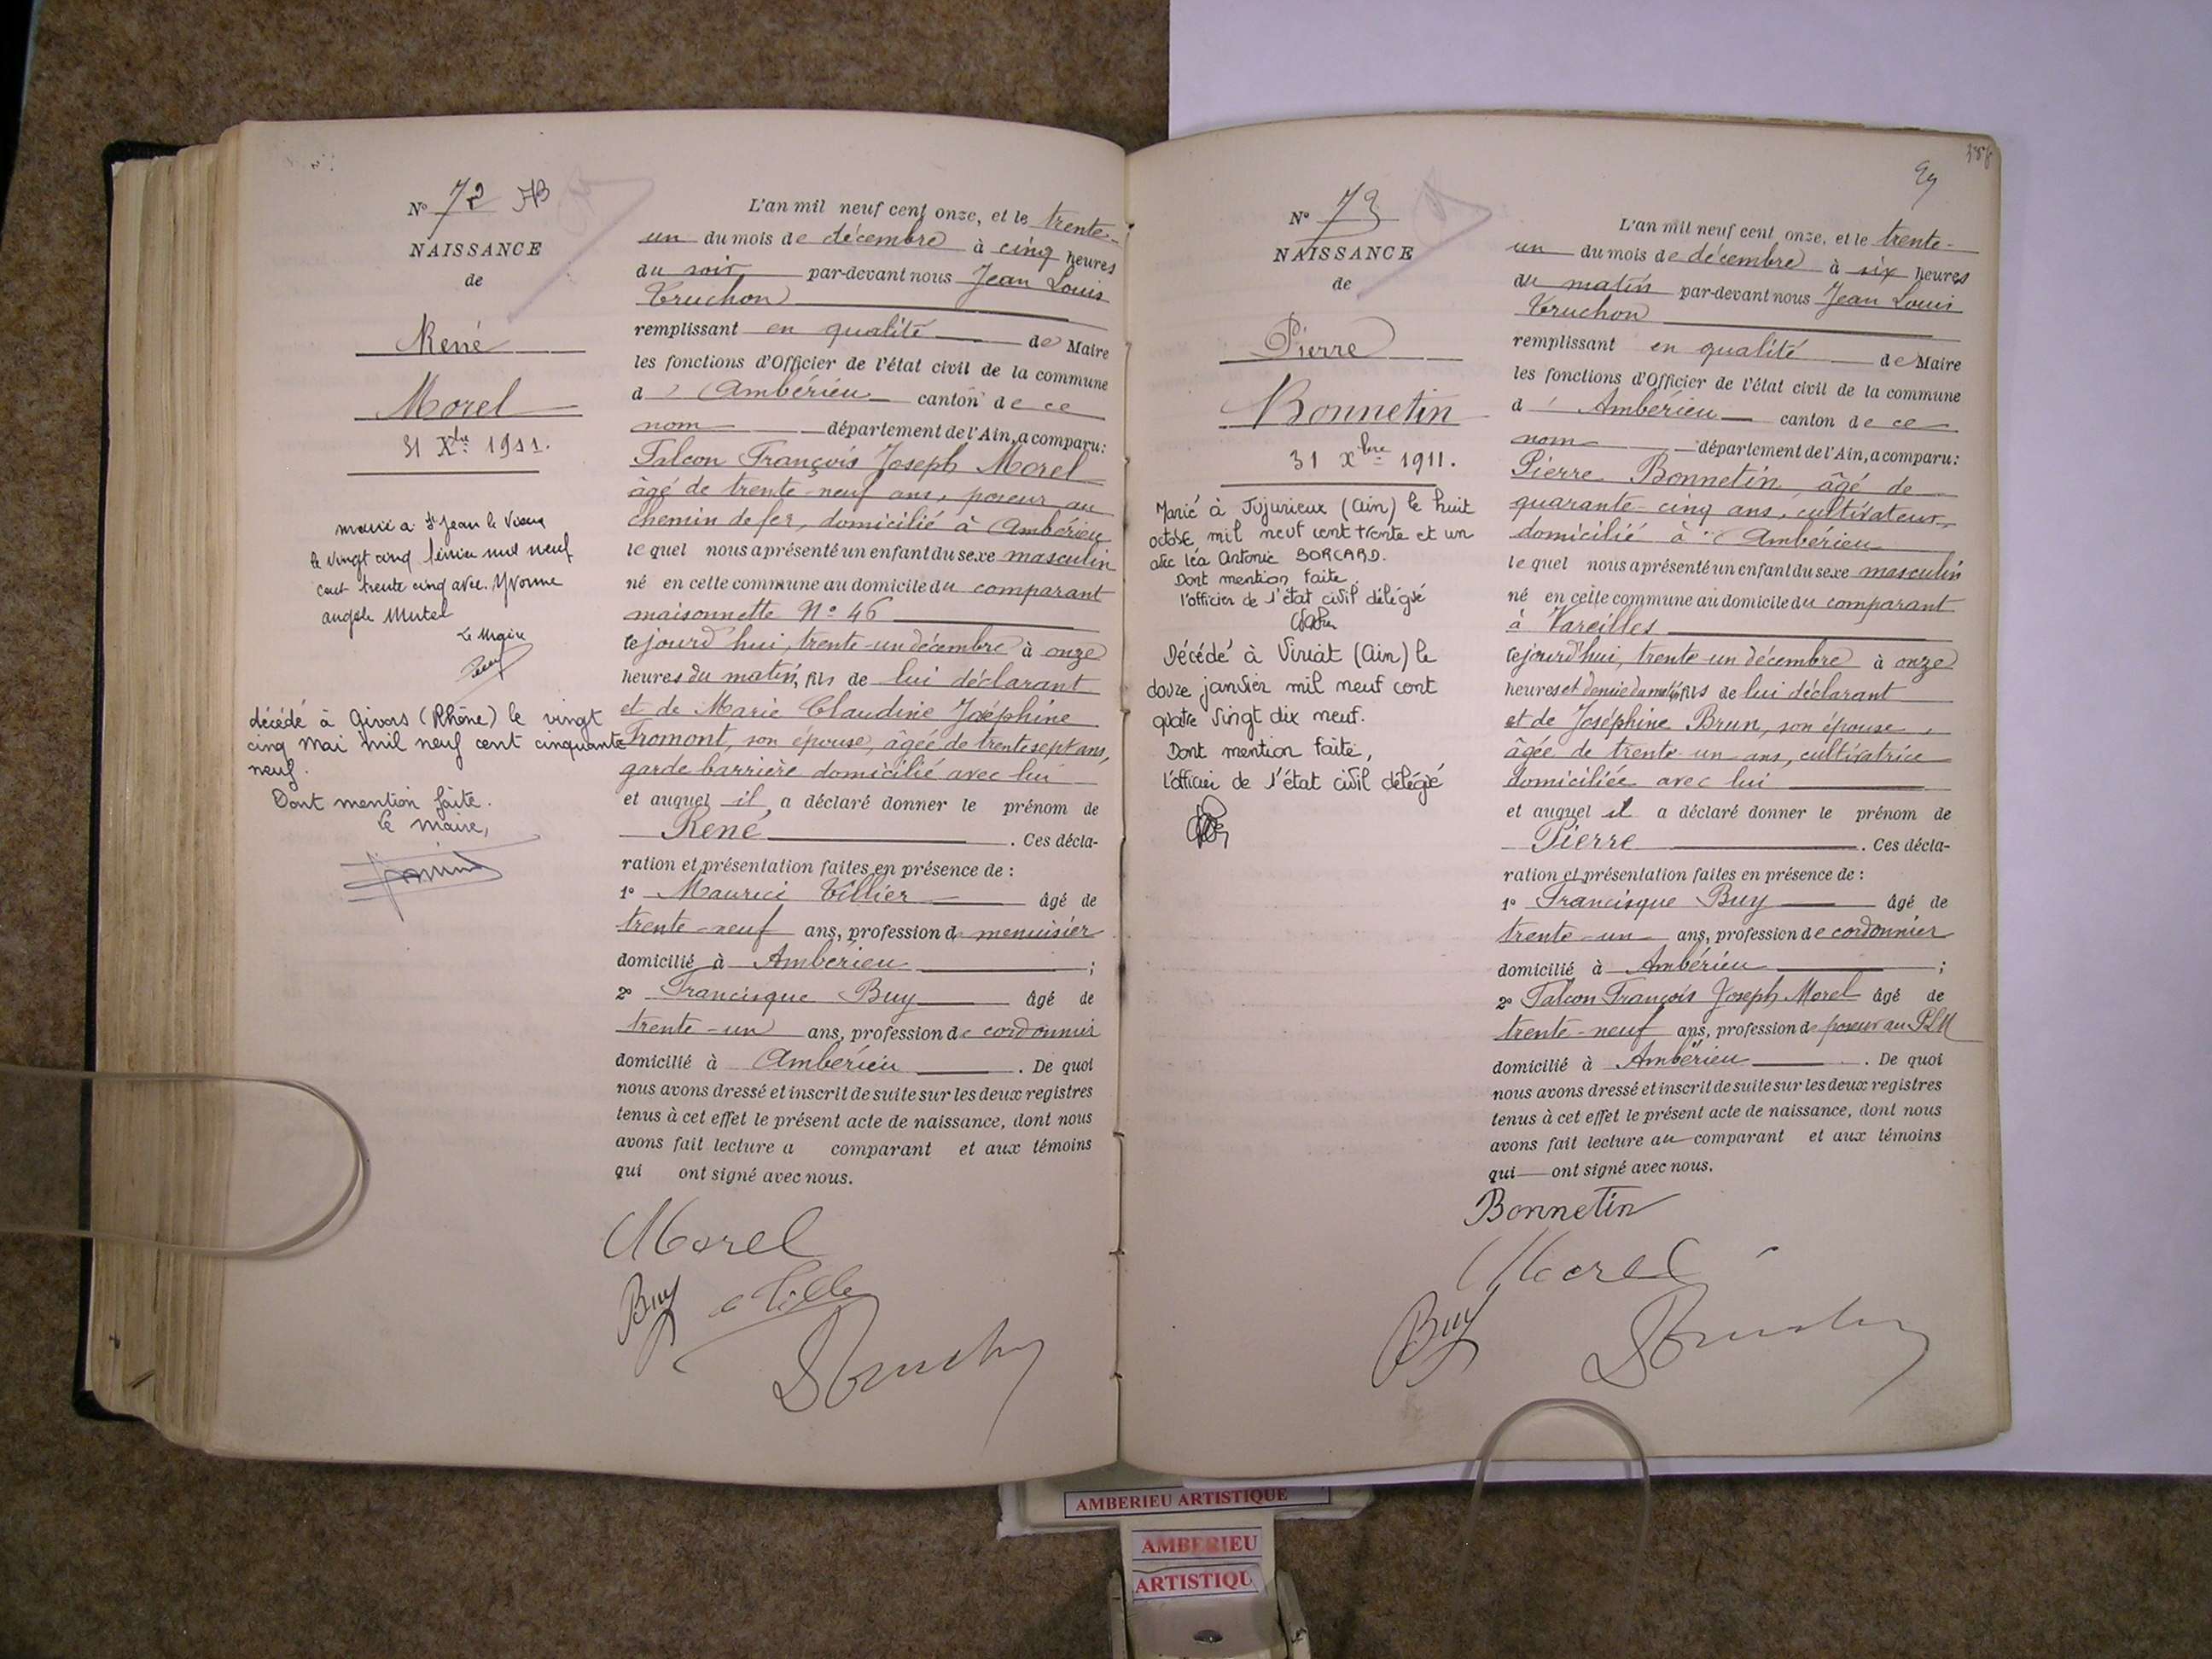 N° 72
NAISSANCE
de
René
Morel
31 Xbre 1911.
marié a St Jean le Vieux
le vingt cinq février mil neuf
cent trente cinq avec Yvonne
angèle Mutel
Le Maire
décédé à Givors (Rhône) le vingt
cinq mai mil neuf cent cinquante
neuf.
Dont mention faite.
Le Maire,
L'an mil neuf cent onze, et le trente-
un du mois de décembre à cinq heures
du soir, par-devant nous Jean Louis
Truchon
remplissant en qualité de Maire
les fonctions d'Officier de l'état civil de la commune
d' Ambérieu canton de ce
nom département de l'Ain, a comparu:
Falcon François Joseph Morel
âgé de trente-neuf ans, poseur au
chemin de fer, domicilié à Ambérieu
lequel nous a présenté un enfant du sexe masculin
né en cette commune au domicile du comparant
maisonnette N° 46
cejourd'hui, trente-un décembre à onze
heures du matin, fils de lui déclarant
et de Marie Claudine Joséphine
Fromont, son épouse, âgée de trente sept ans,
garde barrière domicilié avec lui
et auquel il a déclaré donner le prénom de
René. Ces décla-
ration et présentation faites en présence de :
1° Maurice Tillier âgé de
trente-neuf ans, profession de menuisier
domicilié à Ambérieu ;
2° Francisque Buy âgé de
trente-un ans, profession de cordonnier
domicilié à Ambérieu. De quoi
nous avons dressé et inscrit de suite sur les deux registres
tenus à cet effet le présent acte de naissance, dont nous
avons fait lecture a comparant et aux témoins
qui ont signé avec nous.
Morel
Buy
N° 73
NAISSANCE
de
Pierre
Bonnetin
31 Xbre 1911.
Marié à Jujurieux (Ain) le huit
octobre mil neuf cent trente et un
avec Léa Antonie BORCARD.
Dont mention faite
l'officier de l'état civil délégué
Décédé à Viriat (Ain) le
douze janvier mil neuf cent
quatre vingt dix neuf.
Dont mention faite,
l'officier de l'état civil délégué
L'an mil neuf cent onze, et le trente-
un du mois de décembre à six heures
du matin par-devant nous Jean Louis
Truchon
remplissant en qualité de Maire
les fonctions d'Officier de l'état civil de la commune
d' Ambérieu canton de ce
nom département de l'Ain, a comparu:
Pierre Bonnetin âgé de
quarante-cinq ans, cultivateur,
domicilié à Ambérieu
lequel nous a présenté un enfant du sexe masculin
né en cette commune au domicile du comparant
à Vareilles
cejourd'hui, trente-un décembre à onze
heures et demie du matin, fils de lui déclarant
et de Joséphine Brun, son épouse,
âgée de trente-un ans, cultivatrice
domiciliée avec lui
et auquel il a déclaré donner le prénom de
Pierre. Ces décla-
ration et présentation faites en présence de :
1° Francisque Buy âgé de
trente-un ans, profession de cordonnier
domicilié à Ambérieu ;
2° Falcon François Joseph Morel âgé de
trente-neuf ans, profession de poseur au PLM
domicilié à Ambérieu. De quoi
nous avons dressé et inscrit de suite sur les deux registres
tenus à cet effet le présent acte de naissance, dont nous
avons fait lecture au comparant et aux témoins
qui ont signé avec nous.
Bonnetin
Morel
Buy
AMBERIEU ARTISTIQUE
AMBERIEU
ARTISTIQU